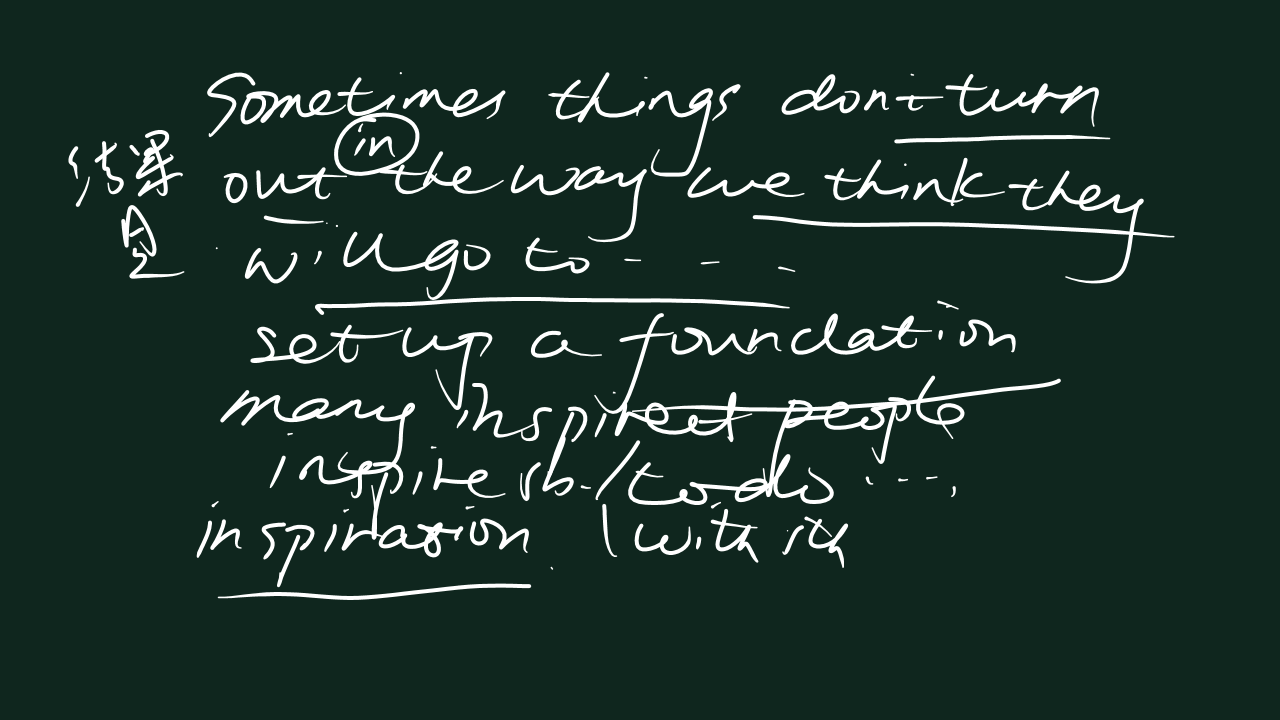 Sometimes things don't turn
out (in) the way we think they
结果是
will go to ....
set up a foundation
many inspired people
inspire sb. / to do ....
inspiration (with sth